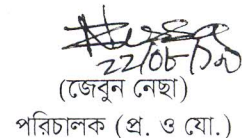 22/08/১৯
(জেবুন নেছা)
পরিচালক (প্র. ও যো.)